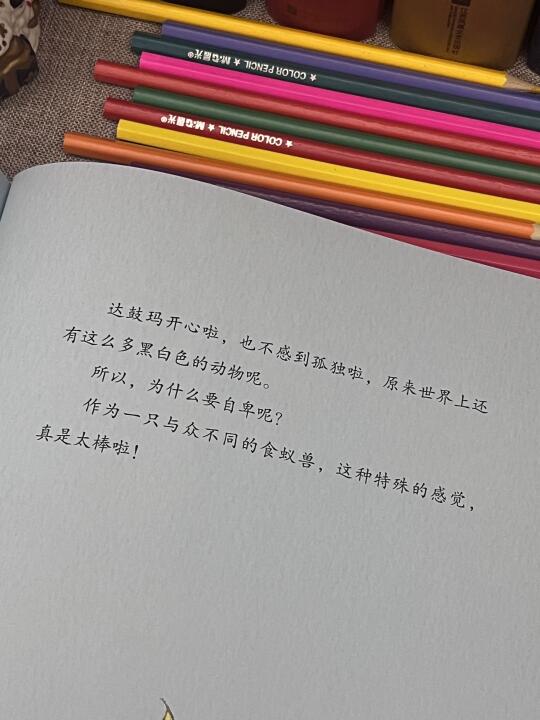 ★ COLOR PENCIL ★ M&G晨光®
★ COLOR PENCIL ★ M&G晨光®
达鼓玛开心啦，也不感到孤独啦，原来世界上还
有这么多黑白色的动物呢。
所以，为什么要自卑呢？
作为一只与众不同的食蚁兽，这种特殊的感觉，
真是太棒啦！